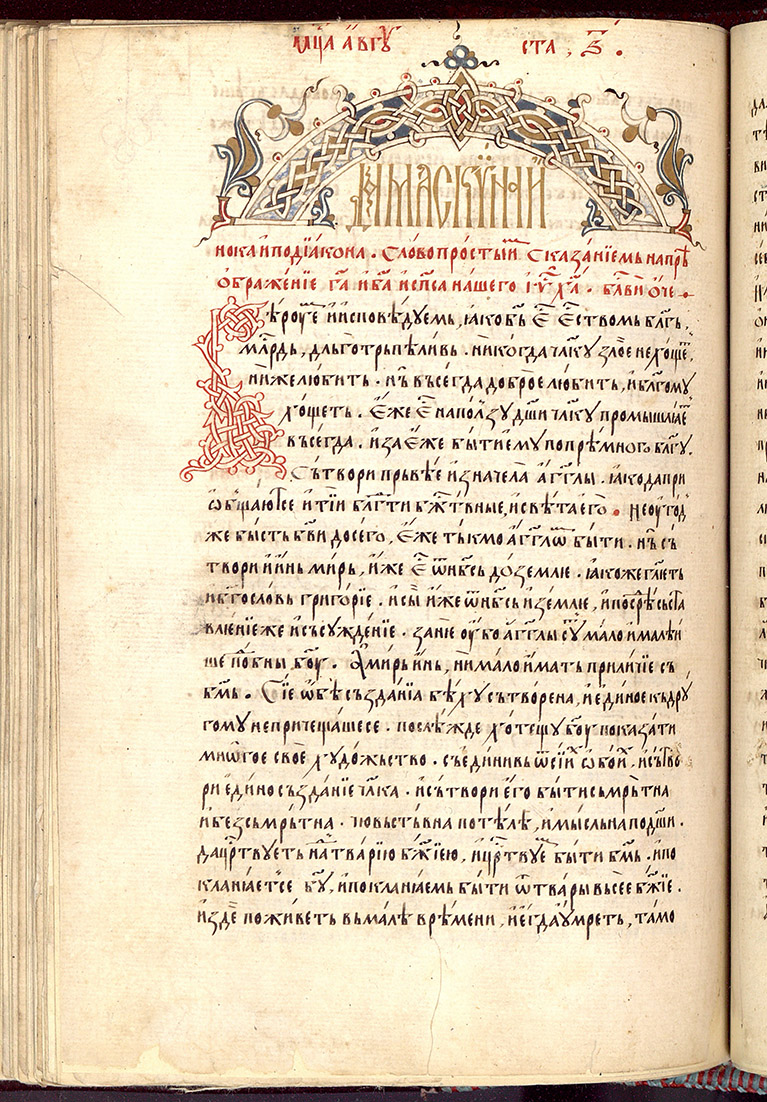 мц҃а авгу ста, ѕ҃.
Дамаскинꙗ
нока и подїакона. слово простыⷨ сказанїемь на прѣ
ѡбраженїе га҃ и ба҃ и сп҃са нашего і҃у х҃а. бл҃ви ѿче.
Вѣрꙋеⷨ и исповѣдꙋемь, ꙗко бь҃ е҃ еⷭ҇ствомь бл҃гь,
мл҃рдь, дльготрьпѣливь. никогда чл҃кꙋ злое не хощеⷮ,
ни же любить. нь вьсегда доброе любить, и бл҃гомꙋ
хощеть. еже е҃ на ползꙋ дш҃и чл҃кꙋ промышлꙗеⷮ
вьсегда. и за еже быти емꙋ по прѣмногѡ бл҃гꙋ.
Сьтвори прьвѣе изначела агг҃лы. ꙗко да при
ѡбщаютсе и тїи бл҃гⷣти бжⷭ҇твные, и свѣта его. не оугодⷩ
же бысть бв҃и до сего, еже тькмо агг҃лѡⷨ быти. нь сь
твори и инь мирь, иже е҃ ѿ нб҃сь до землѥ. ꙗкоже гл҃еть
и бг҃ословь григорїе. и сьⷨ иже ѿ нб҃сь и землѥ, и посрⷣѣ сьста
влѥнїе же и сьсꙋжденїе. занѥ оубо агг҃лы сꙋⷮ мало и малѣи
ше пⷣобны бг҃ꙋ. А мирь инь, ни мало имать приличїе сь
бм҃ь. Сїе ѡбѣ сьзданїа бѣхꙋ сьтворена, и едино е кь дрꙋ
гомꙋ не причещашесе. послѣжде хотещꙋ бг҃ꙋ показати
мнѡгое свое хꙋдожьство. сьединивь ѿ сїиⷯ ѡбоиⷯ. и сьтво
ри едино сьзданїе чл҃ка. и сьтвори его быти сьмрьтна
и бесьмрьтна. чювьствьна по тѣлѣ, и мысльна по дш҃и.
да црⷭ҇твꙋеть наⷣ тварїю бж҃їею, и црⷭ҇твꙋеⷨ быти бм҃ь. и по
кланꙗетсе бг҃ꙋ, и покланꙗемь быти ѿ твары вьсее бж҃їе.
и здеⷭ҇ поживеть вь малѣ врѣмени, и егда оумреть, тамо